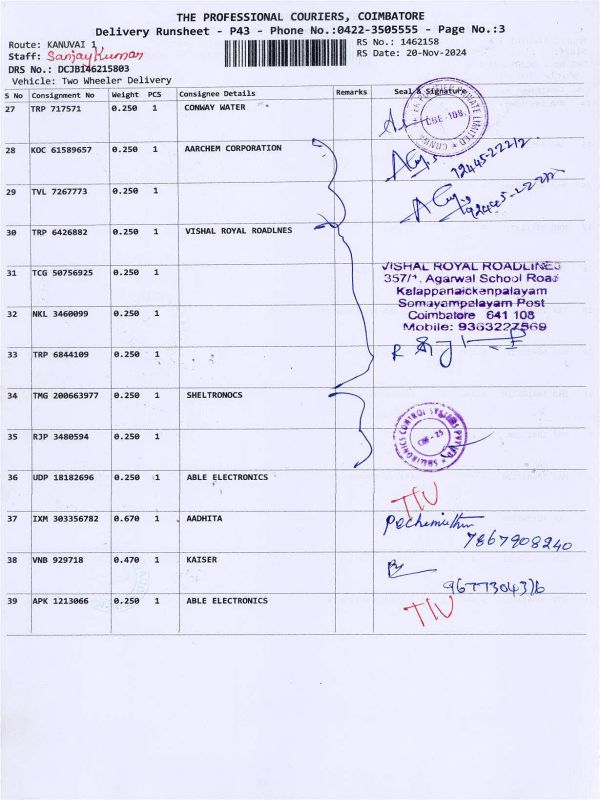 THE PROFESSIONAL COURIERS, COIMBATORE
Delivery Runsheet - P43 - Phone No.:0422-3505555 - Page No.:3
Route: KANUVAI 1 RS No.: 1462158
Staff: Sanjay Kumar RS Date: 20-Nov-2024
DRS No.: DCJB146215803
Vehicle: Two Wheeler Delivery
S No Consignment No Weight PCS Consignee Details Remarks Seal & Signature
27 TRP 717571 0.250 1 CONWAY WATER
28 KOC 61589657 0.250 1 AARCHEM CORPORATION
29 TVL 7267773 0.250 1
30 TRP 6426882 0.250 1 VISHAL ROYAL ROADLNES
31 TCG 50756925 0.250 1
VISHAL ROYAL ROADLINES
357/1, Agarwal School Road
Kalappanaickenpalayam
Somayampalayam Post
Coimbatore 641 108
Mobile: 9363227569
32 NKL 3460099 0.250 1
33 TRP 6844109 0.250 1
34 TMG 200663977 0.250 1 SHELTRONOCS
SHELTRONICS CONTROL SYSTEMS PVT LTD
CBE - 25
35 RJP 3480594 0.250 1
36 UDP 18182696 0.250 1 ABLE ELECTRONICS
37 IXM 303356782 0.670 1 AADHITA
7867908240
38 VNB 929718 0.470 1 KAISER
9677304376
39 APK 1213066 0.250 1 ABLE ELECTRONICS